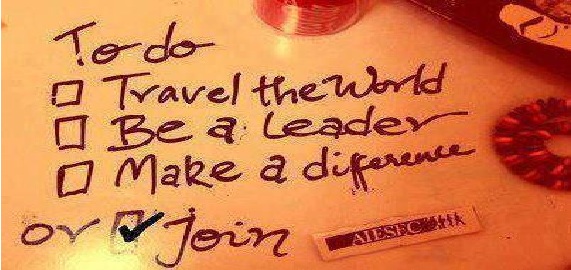 To do
Travel the World
Be a Leader
Make a difference
or join AIESEC